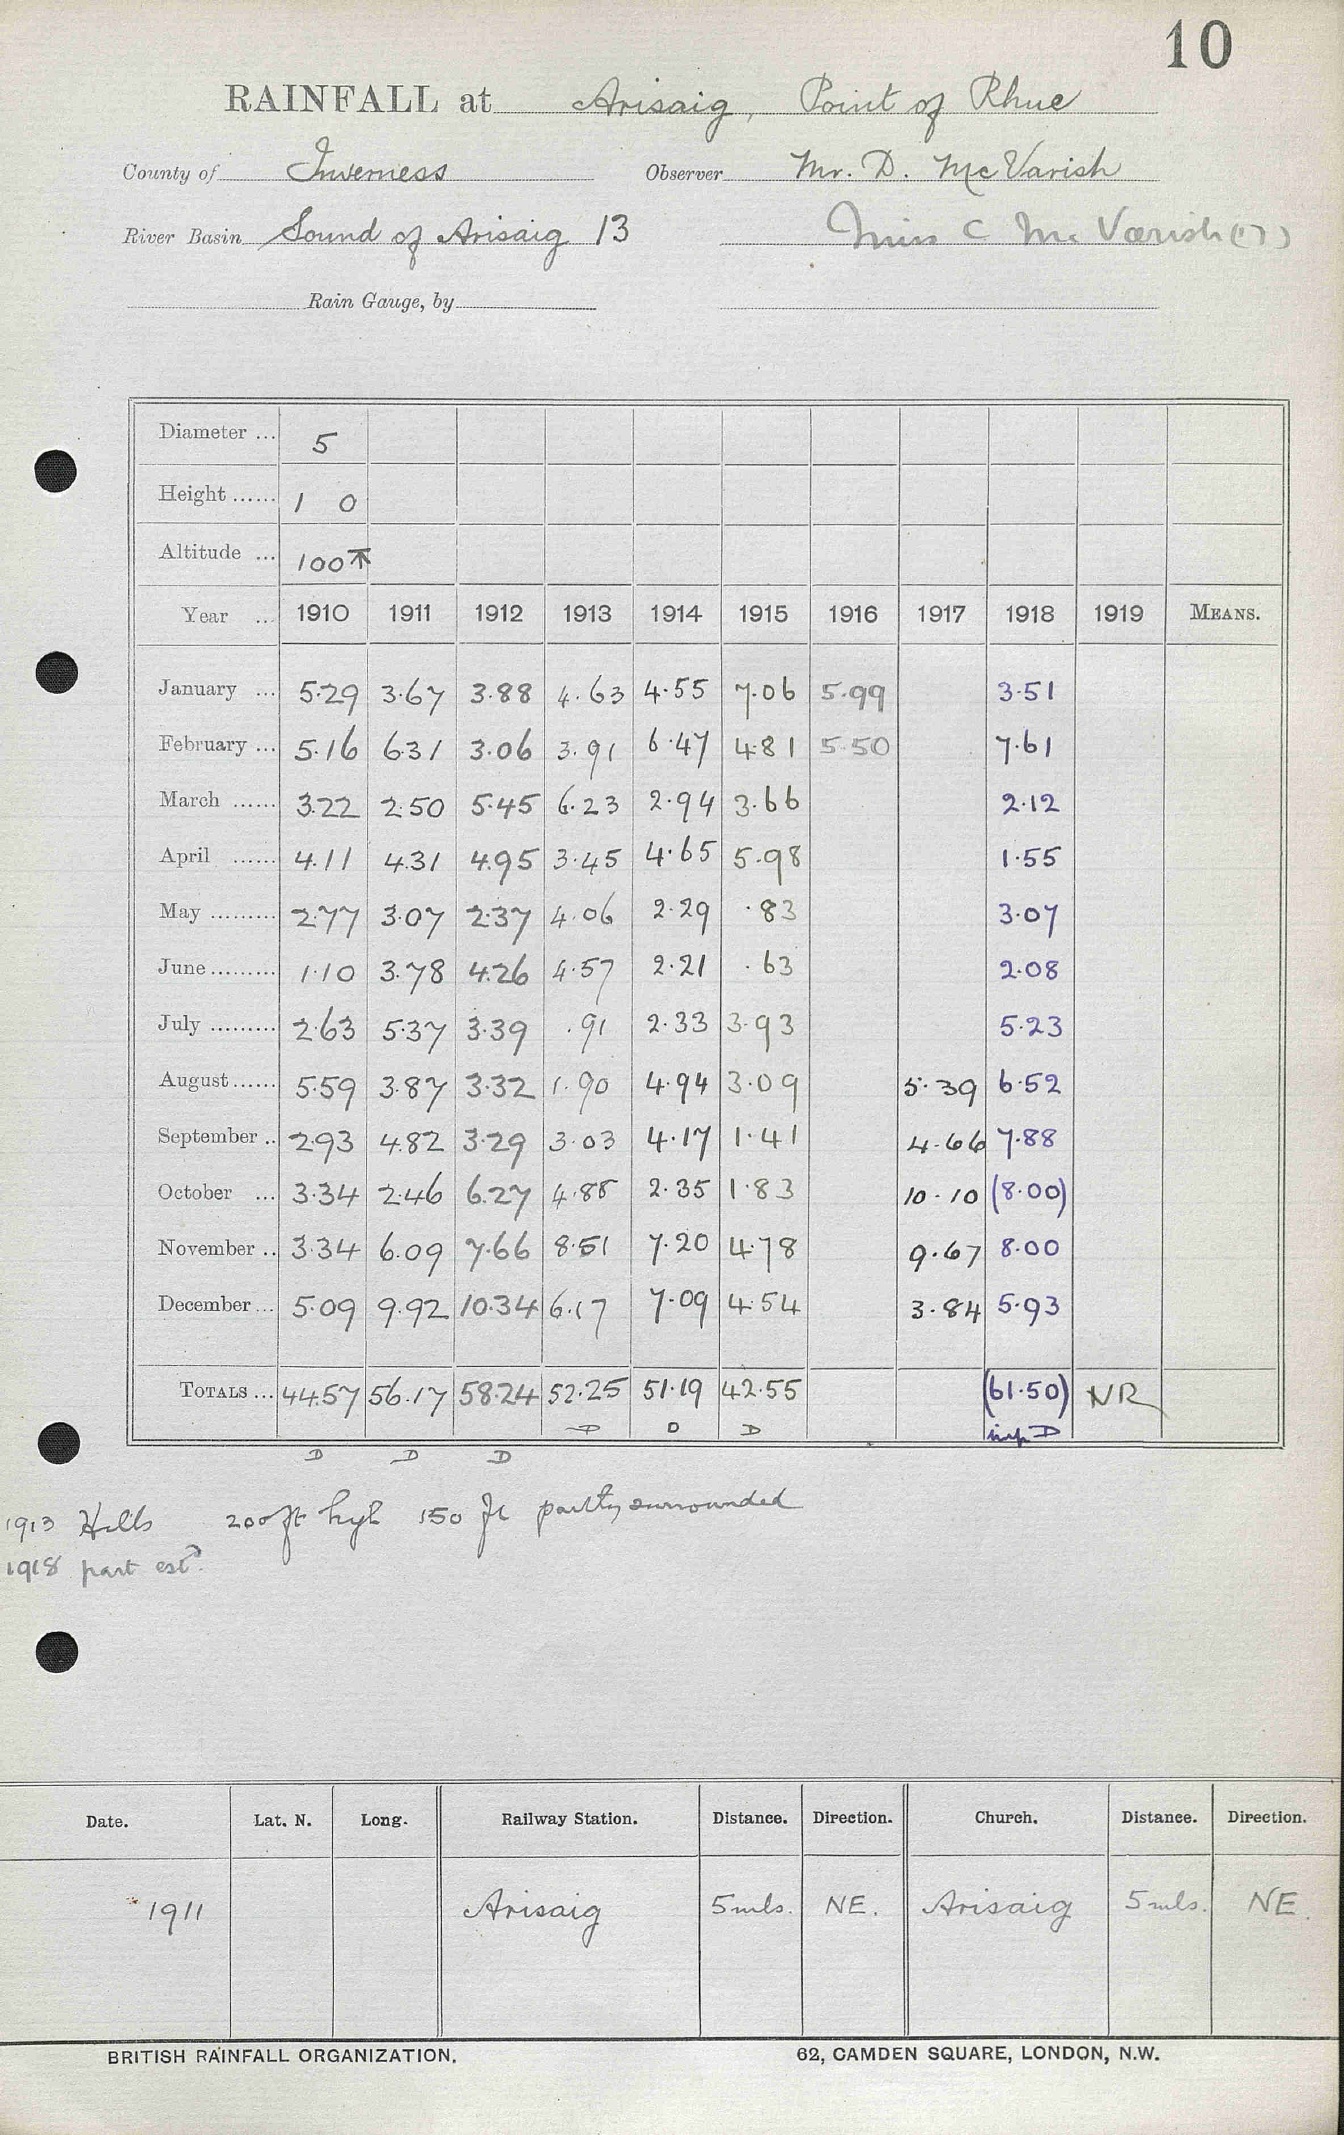 10
RAINFALL at Arisaig, Point of Rhue
County of Inverness Observer Mr. D. McVarish
River Basin Sound of Arisaig 13 Miss C McVarish (17)
Rain Gauge, by
Diameter ... 5
Height ...... 1 0
Altitude ... 100
Year ... 1910 1911 1912 1913 1914 1915 1916 1917 1918 1919 MEANS.
January ... 5.29 3.67 3.88 4.63 4.55 7.06 5.99 3.51
February ... 5.16 6.31 3.06 3.91 6.47 4.81 5.50 7.61
March ...... 3.22 2.50 5.45 6.23 2.94 3.66 2.12
April ...... 4.11 4.31 4.95 3.45 4.65 5.98 1.55
May ......... 2.77 3.07 2.37 4.06 2.29 .83 3.07
June ......... 1.10 3.78 4.26 4.57 2.21 .63 2.08
July ......... 2.63 5.37 3.39 .91 2.33 3.93 5.23
August ...... 5.59 3.87 3.32 1.90 4.94 3.09 5.39 6.52
September .. 2.93 4.82 3.29 3.03 4.17 1.41 4.66 7.88
October ... 3.34 2.46 6.27 4.88 2.35 1.83 10.10 (8.00)
November .. 3.34 6.09 7.66 8.51 7.20 4.78 9.67 8.00
December ... 5.09 9.92 10.34 6.17 7.09 4.54 3.84 5.93
TOTALS ... 44.57 56.17 58.24 52.25 51.19 42.55 (61.50) NR
D D D D D D imp D
1913 Hills 200 ft high 150 ft partly surrounded
1918 part estd.
Date. Lat. N. Long. Railway Station. Distance. Direction. Church. Distance. Direction.
1911 Arisaig 5 mls. NE. Arisaig 5 mls. NE.
BRITISH RAINFALL ORGANIZATION. 62, CAMDEN SQUARE, LONDON, N.W.